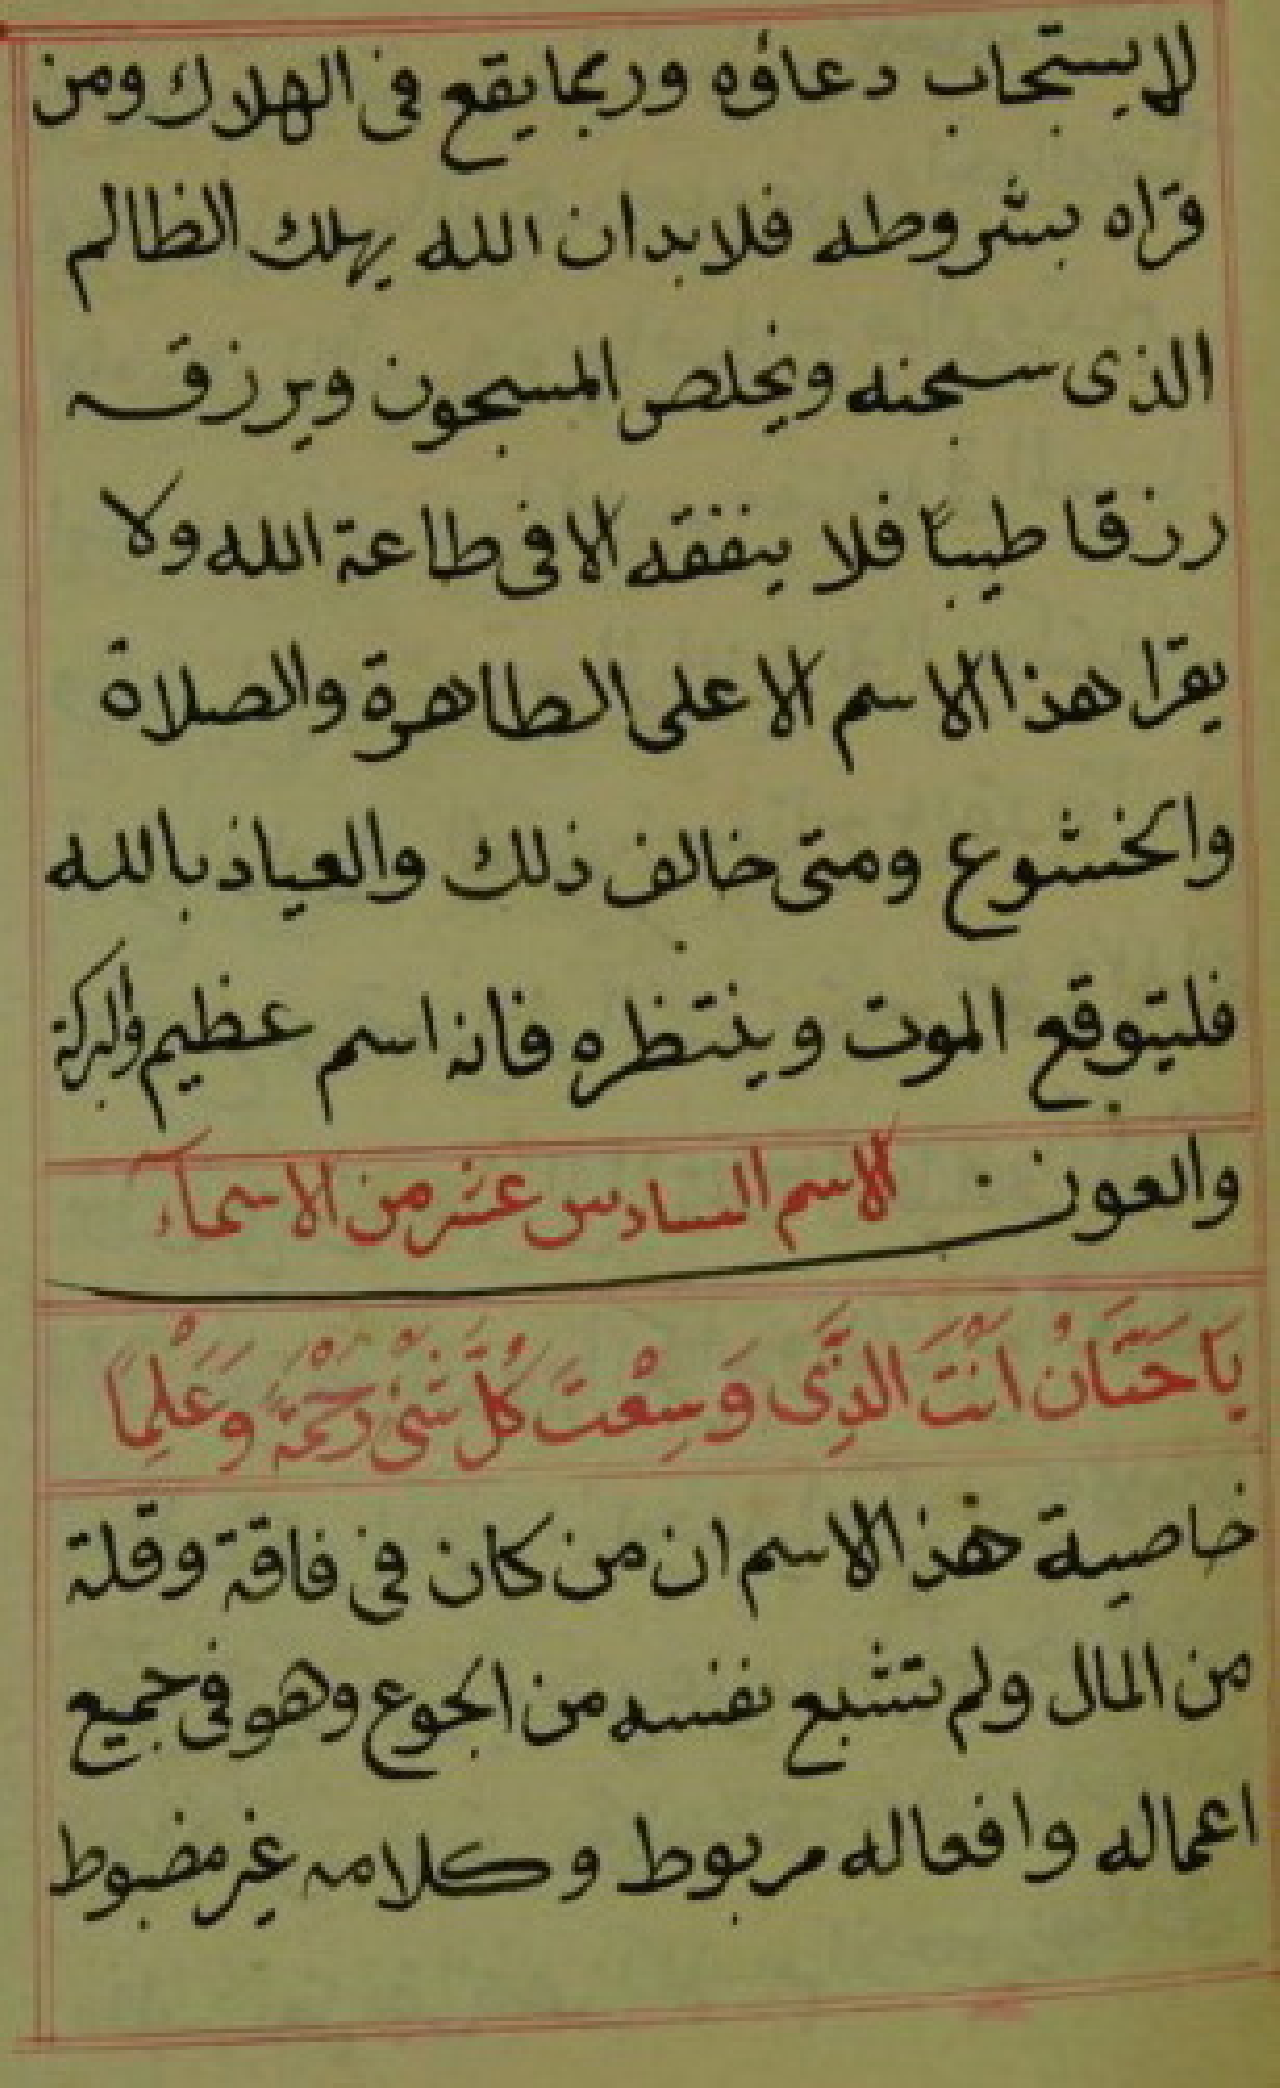 لا يستجاب دعاؤه وربما يقع فى الهلاك ومن
قراه بشروطه فلابد ان الله يهلك الظالم
الذى سجنه ويخلص المسجون ويرزقه
رزقا طيباً فلا ينفقه الا فى طاعة الله ولا
يقرا هذا الاسم الا على الطاهرة والصلاة
والخشوع ومتى خالف ذلك والعياذ بالله
فليتوقع الموت وينتظره فانه اسم عظيم والبركة
والعون الاسم السادس عشر من الاسمآء
يَا حَنَّانُ اَنْتَ الَّذِّى وَسِعْتَ كُلَّ شَىْْ رَحْمَةً وَعَلْمِاً
خاصية هذا الاسم ان من كان فى فاقة وقلة
من المال ولم تشبع نفسه من الجوع وهو فى جميع
اعماله وافعاله مربوط وكلامه غير مضبوط